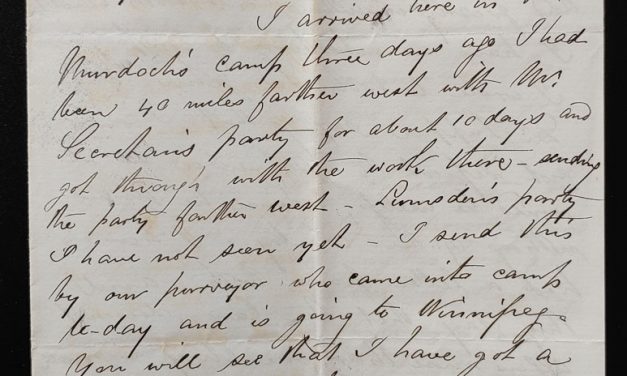 I arrived here in
Murdoch's camp three days ago I had
been 40 miles farther west with Mr.
Secretan's party for about 10 days and
got through with the work there – sending
the party farther west – Lumsden's party
I have not seen yet – I send this
by our purveyor who came into camp
to-day and is going to Winnipeg.
You will see that I have got a